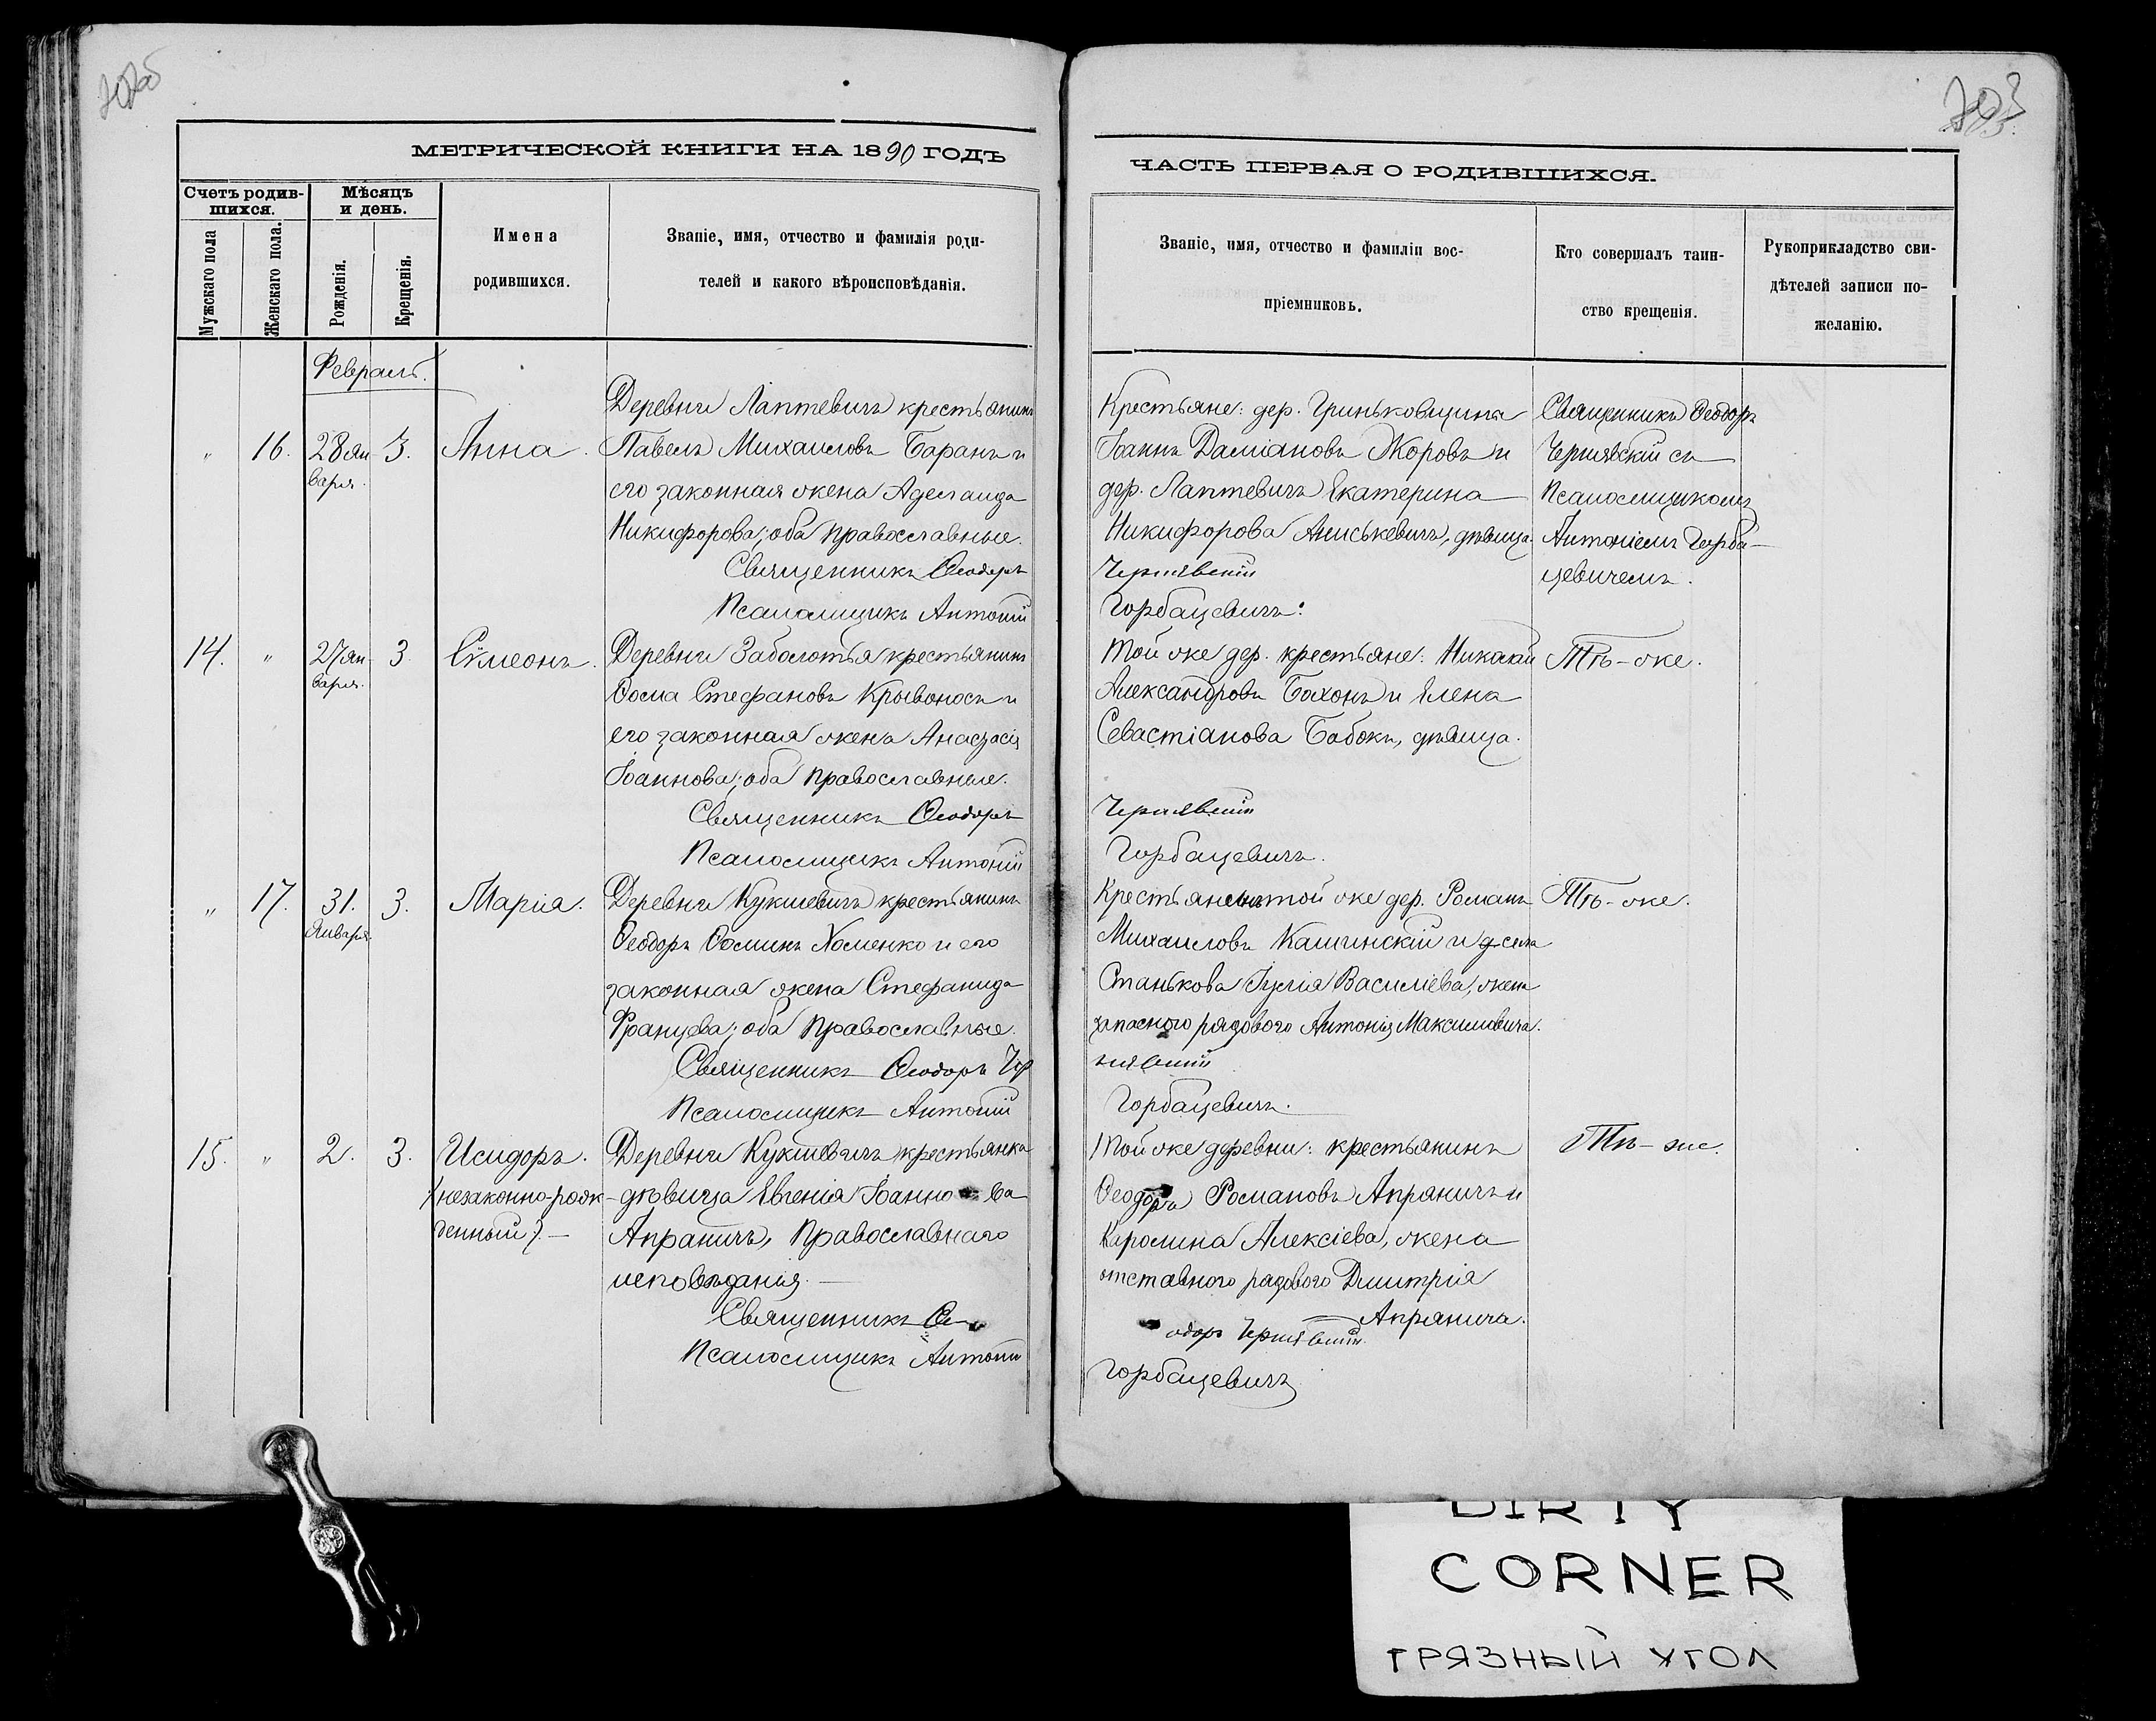 МЕТРИЧЕСКОЙ КНИГИ НА 1890 ГОДЪ
Счетъ родив-
шихся.
Мѣсяцъ
и день.
Мужскаго пола
Женскаго пола.
Рожденія.
Крещенія.
Имена
родившихся.
Званіе, имя, отчество и фамилія роди-
телей и какого вѣроисповѣданія.
Февраль.
" 16. 28 ян 3. Анна.
варя.
Деревни Лаптевичъ крестьянинъ
Павелъ Михаиловъ Баранъ и
его законная жена Аделаида
Никифорова; оба православные.
Священникъ Ѳеодоръ
Псаломщикъ Антоній
14. " 27 ян 3 Сѵмеонъ.
варя.
Деревни Заболотья крестьянинъ
Ѳома Стефановъ Кривоносъ и
его законная жена Анастасія
Іоаннова; оба православные.
Священникъ Ѳеодоръ
Псаломщикъ Антоній
" 17. 31. 3. Марія.
Января
Деревни Кукшевичъ крестьянинъ
Ѳеодоръ Ѳоминъ Хоменко и его
законная жена Стефанида
Францова; оба православные.
Священникъ Ѳеодоръ Чер
Псаломщикъ Антоній
15. " 2. 3. Исидоръ.
(незаконно-рож-
денный). —
Деревни Кукшевичъ крестьянка
дѣвица Евгенія Іоаннова
Апраничъ, православнаго
исповѣданія. —
Священникъ Ѳе
Псаломщикъ Антоній
ЧАСТЬ ПЕРВАЯ О РОДИВШИХСЯ.
Званіе, имя, отчество и фамиліи вос-
пріемниковъ.
Кто совершалъ таин-
ство крещенія.
Рукоприкладство сви-
дѣтелей записи по-
желанію.
Крестьяне: дер. Гриньковщина
Іоаннъ Даміановъ Жоровъ и
дер. Лаптевичъ Екатерина
Никифорова Аниськевичъ, дѣвица.
Чернявскій
Горбацевичъ.
Священникъ Ѳеодоръ
Чернявскій съ
Псаломщикомъ
Антоніемъ Горба-
цевичемъ.
Той же дер. крестьяне: Николай
Александровъ Бахонъ и Елена
Севастіанова Бобокъ, дѣвица.
Чернявскій
Горбацевичъ.
Тѣ-же.
той же дер. Романъ
Михаиловъ Кашинскій и села
Станькова Іулія Василіева, жена
запаснаго рядового Антонія Максимовича.
нявскій
Горбацевичъ.
Тѣ-же.
Той же деревни: крестьянинъ
Ѳеодоръ Романовъ Апраничъ и
Каролина Алексіева, жена
отставного рядового Димитрія
Апранича.
одоръ Чернявскій.
Горбацевичъ
Тѣ-же.
DIRTY
CORNER
ГРЯЗНЫЙ УГОЛ